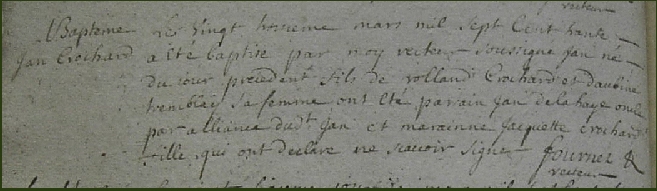 recteur
Bapteme
Jan Crochard
Les vingt troisieme mars mil sept Cent trante
a ete baptise par moy recteur soussigne Jan né
du jour precedent fils de rolland Crochard et daubine
tremblay sa femme ont eté parain Jan delahaye oncle
par alliance dudt Jan et marainne Jacquette crochard
fille qui ont declare ne scavoir signe fournel R
recteur